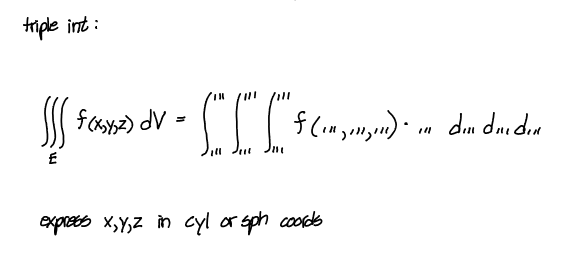 triple int :
∭_E f(x,y,z) dV = ∫_{...}^{...} ∫_{...}^{...} ∫_{...}^{...} f(..., ..., ...) · ... d... d... d...
express x,y,z in cyl or sph coords